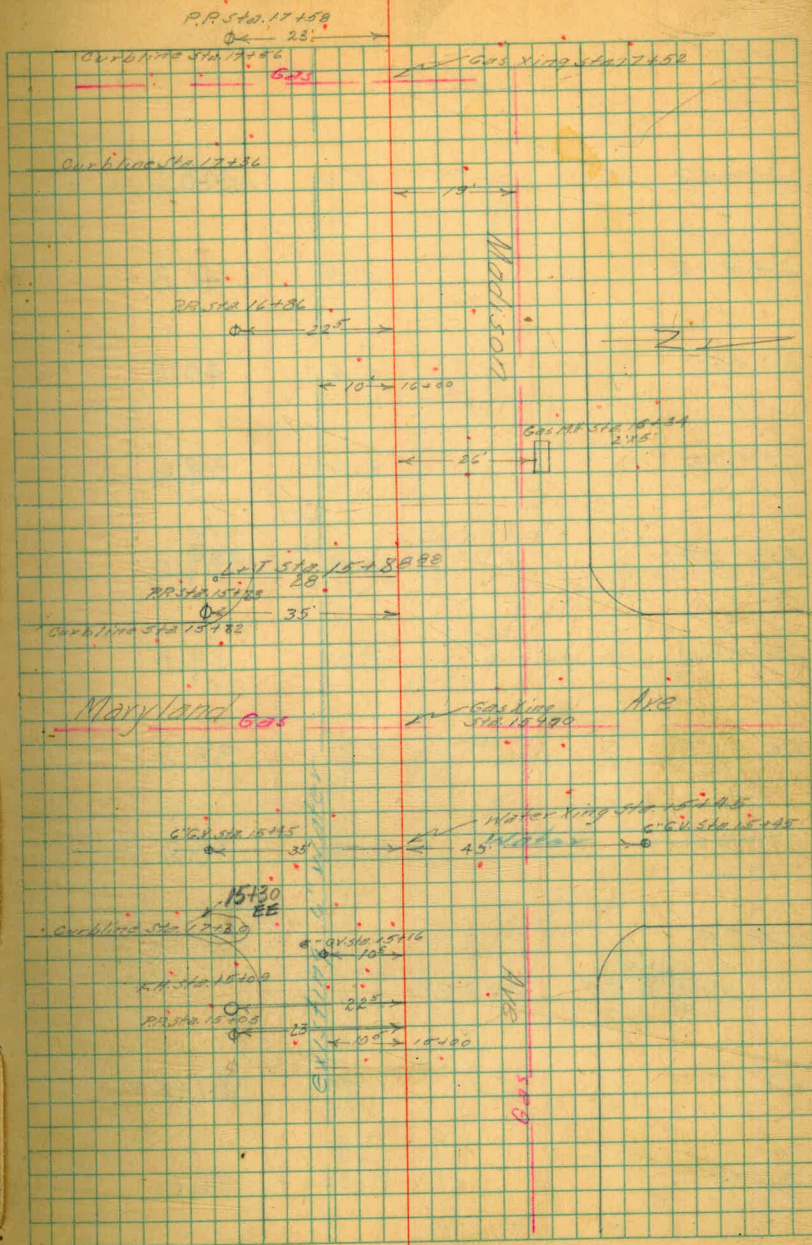 P.P. Sta. 17+58
23'
Curbline Sta. 17+56
Gas
Gas Xing Sta 17+52
Curbline Sta 17+36
19'
Madison
P.P. Sta 16+86
22⁵
10' 16+00
Gas M.H. Sta. 15+34
2'x5'
26'
L+T Sta. 15+88⁸⁸
28'
35'
Curbline Sta 15+82
Maryland
Gas
Gas Xing
Ave
Water Xing Sta. 15+45
6" G.V. Sta. 15+45
35'
Water
45'
6" G.V. Sta. 15+45
15+30
EE
Curbline Sta. 17+30
6" G.V. Sta. 15+16
10⁵
F.H. Sta. 15+09
22⁵
P.P. Sta. 15+05
23'
10⁵ 15+00
Ave
Gas